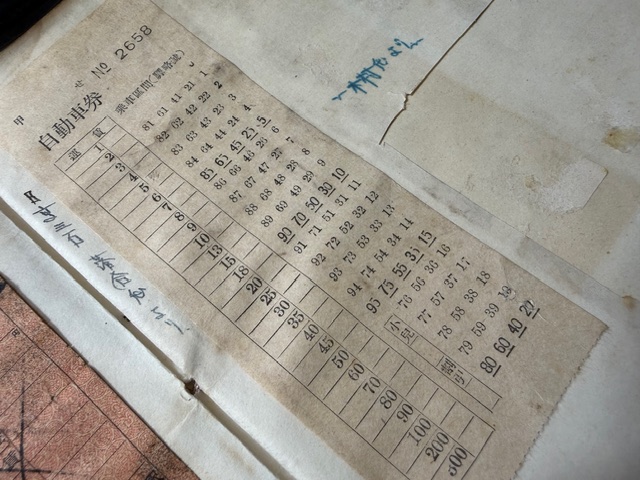 せ № 2658
甲
自動車券
乗車區間(驛略號)
81 61 41 21 1
82 62 42 22 2
83 63 43 23 3
84 64 44 24 4
85 65 45 25 5
86 66 46 26 6
87 67 47 27 7
88 68 48 28 8
89 69 49 29 9
90 70 50 30 10
91 71 51 31 11
92 72 52 32 12
93 73 53 33 13
94 74 54 34 14
95 75 55 35 15
76 56 36 16
77 57 37 17
78 58 38 18
79 59 39 19
80 60 40 20
小兒
割引
運賃
1
2
3
4
5
6
7
8
9
10
13
15
18
20
25
30
35
40
45
50
60
70
80
90
100
200
300